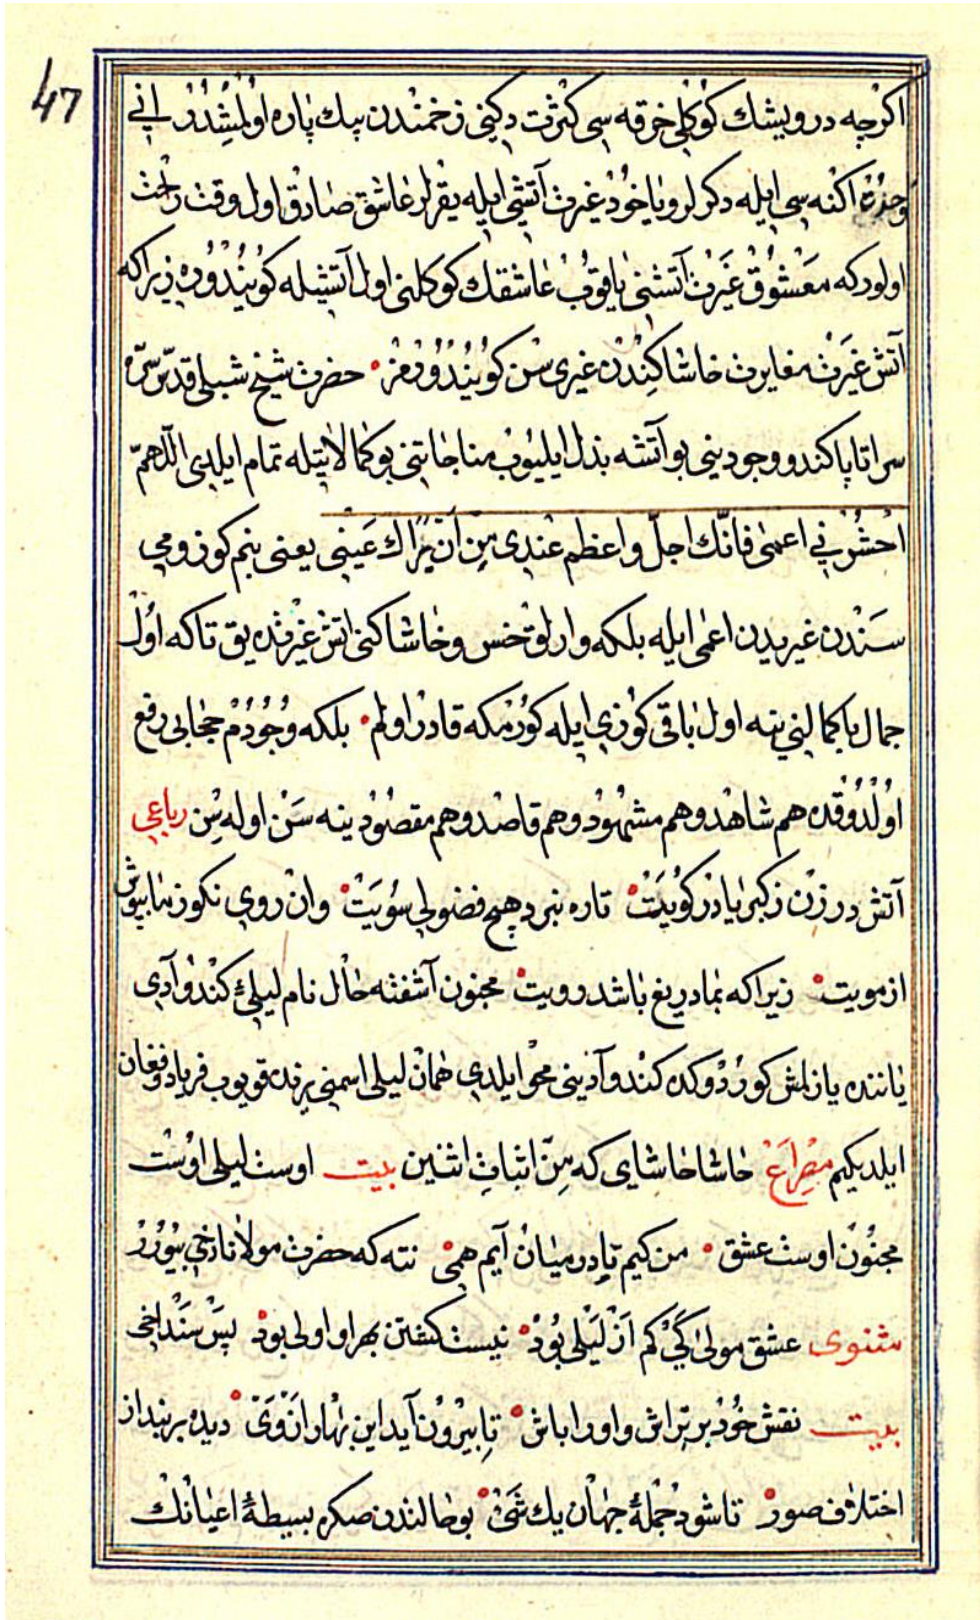 47
اكرچه درويشك كوكلى خرقه سى كثرت دكنى زخمندن پيك پاره اولمشدر انى
وحدت اكنه سى ايله دكرلر ويا خود غيرت آتشى ايله يقرلر عاشق صادق اول وقت راحت
اولور كه معشوق غيرت آتشنى ياقوب عاشقك كوكلنى اول آتشيله كوينديره زيراكه
آتش غيرت مغايرت خاشاكندن غيرى سن كويندورمز حضرت شيخ شبلى قدس سره
سراتاپا كندو وجودينى بو آتشه بذل ايليوب مناجاتنى بو كمالاتيله تمام ايلدى اللهم
احشرني اعمى فانك اجل واعظم عندى من ان يراك عينى يعنى بنم كوزومى
سندن غيريدن اعمى ايله بلكه وارلق خس وخاشاكنى اتش غيرتده يق تاكه اول
جمال باكمالنى ينه اول باقى كوزى ايله كورمكه قادر اولم بلكه وجودم حجابى رفع
اولدوقده هم شاهد وهم مشهود وهم قاصد وهم مقصود ينه سن اوله سن رباعى
آتش درزن زكبريا در كويت تا ره نبرد هيچ فضولى سويت وان روى نكو زما بپوش
از مويت زيراكه بما دريغ باشد رويت مجنون آشفته حال نام ليلى كندو آدى
ياننده يازلمش كوردوكده كندو آدينى محو ايلدى همان ليلى اسمنى يرنده قويوب فرياد وفغان
ايلديكيم مصراع حاشا حاشاى كه من اثبات اثنين بيت اوست ليلى اوست
مجنون اوست عشق من كيم تا در ميان آيم همى نته كه حضرت مولانا دخى بيورر
مثنوى عشق مولى كى كم از ليلى بود نيست كشتن بهر او اولى بود پس سنداخى
بيت نقش خود بر تراش واورا باش تا بيرون آيد اين نهار از وى ديده بربند از
اختلاف صور تا شود جملۀ جهان يك شى بو حالندن صكره بسيطۀ اعيانك